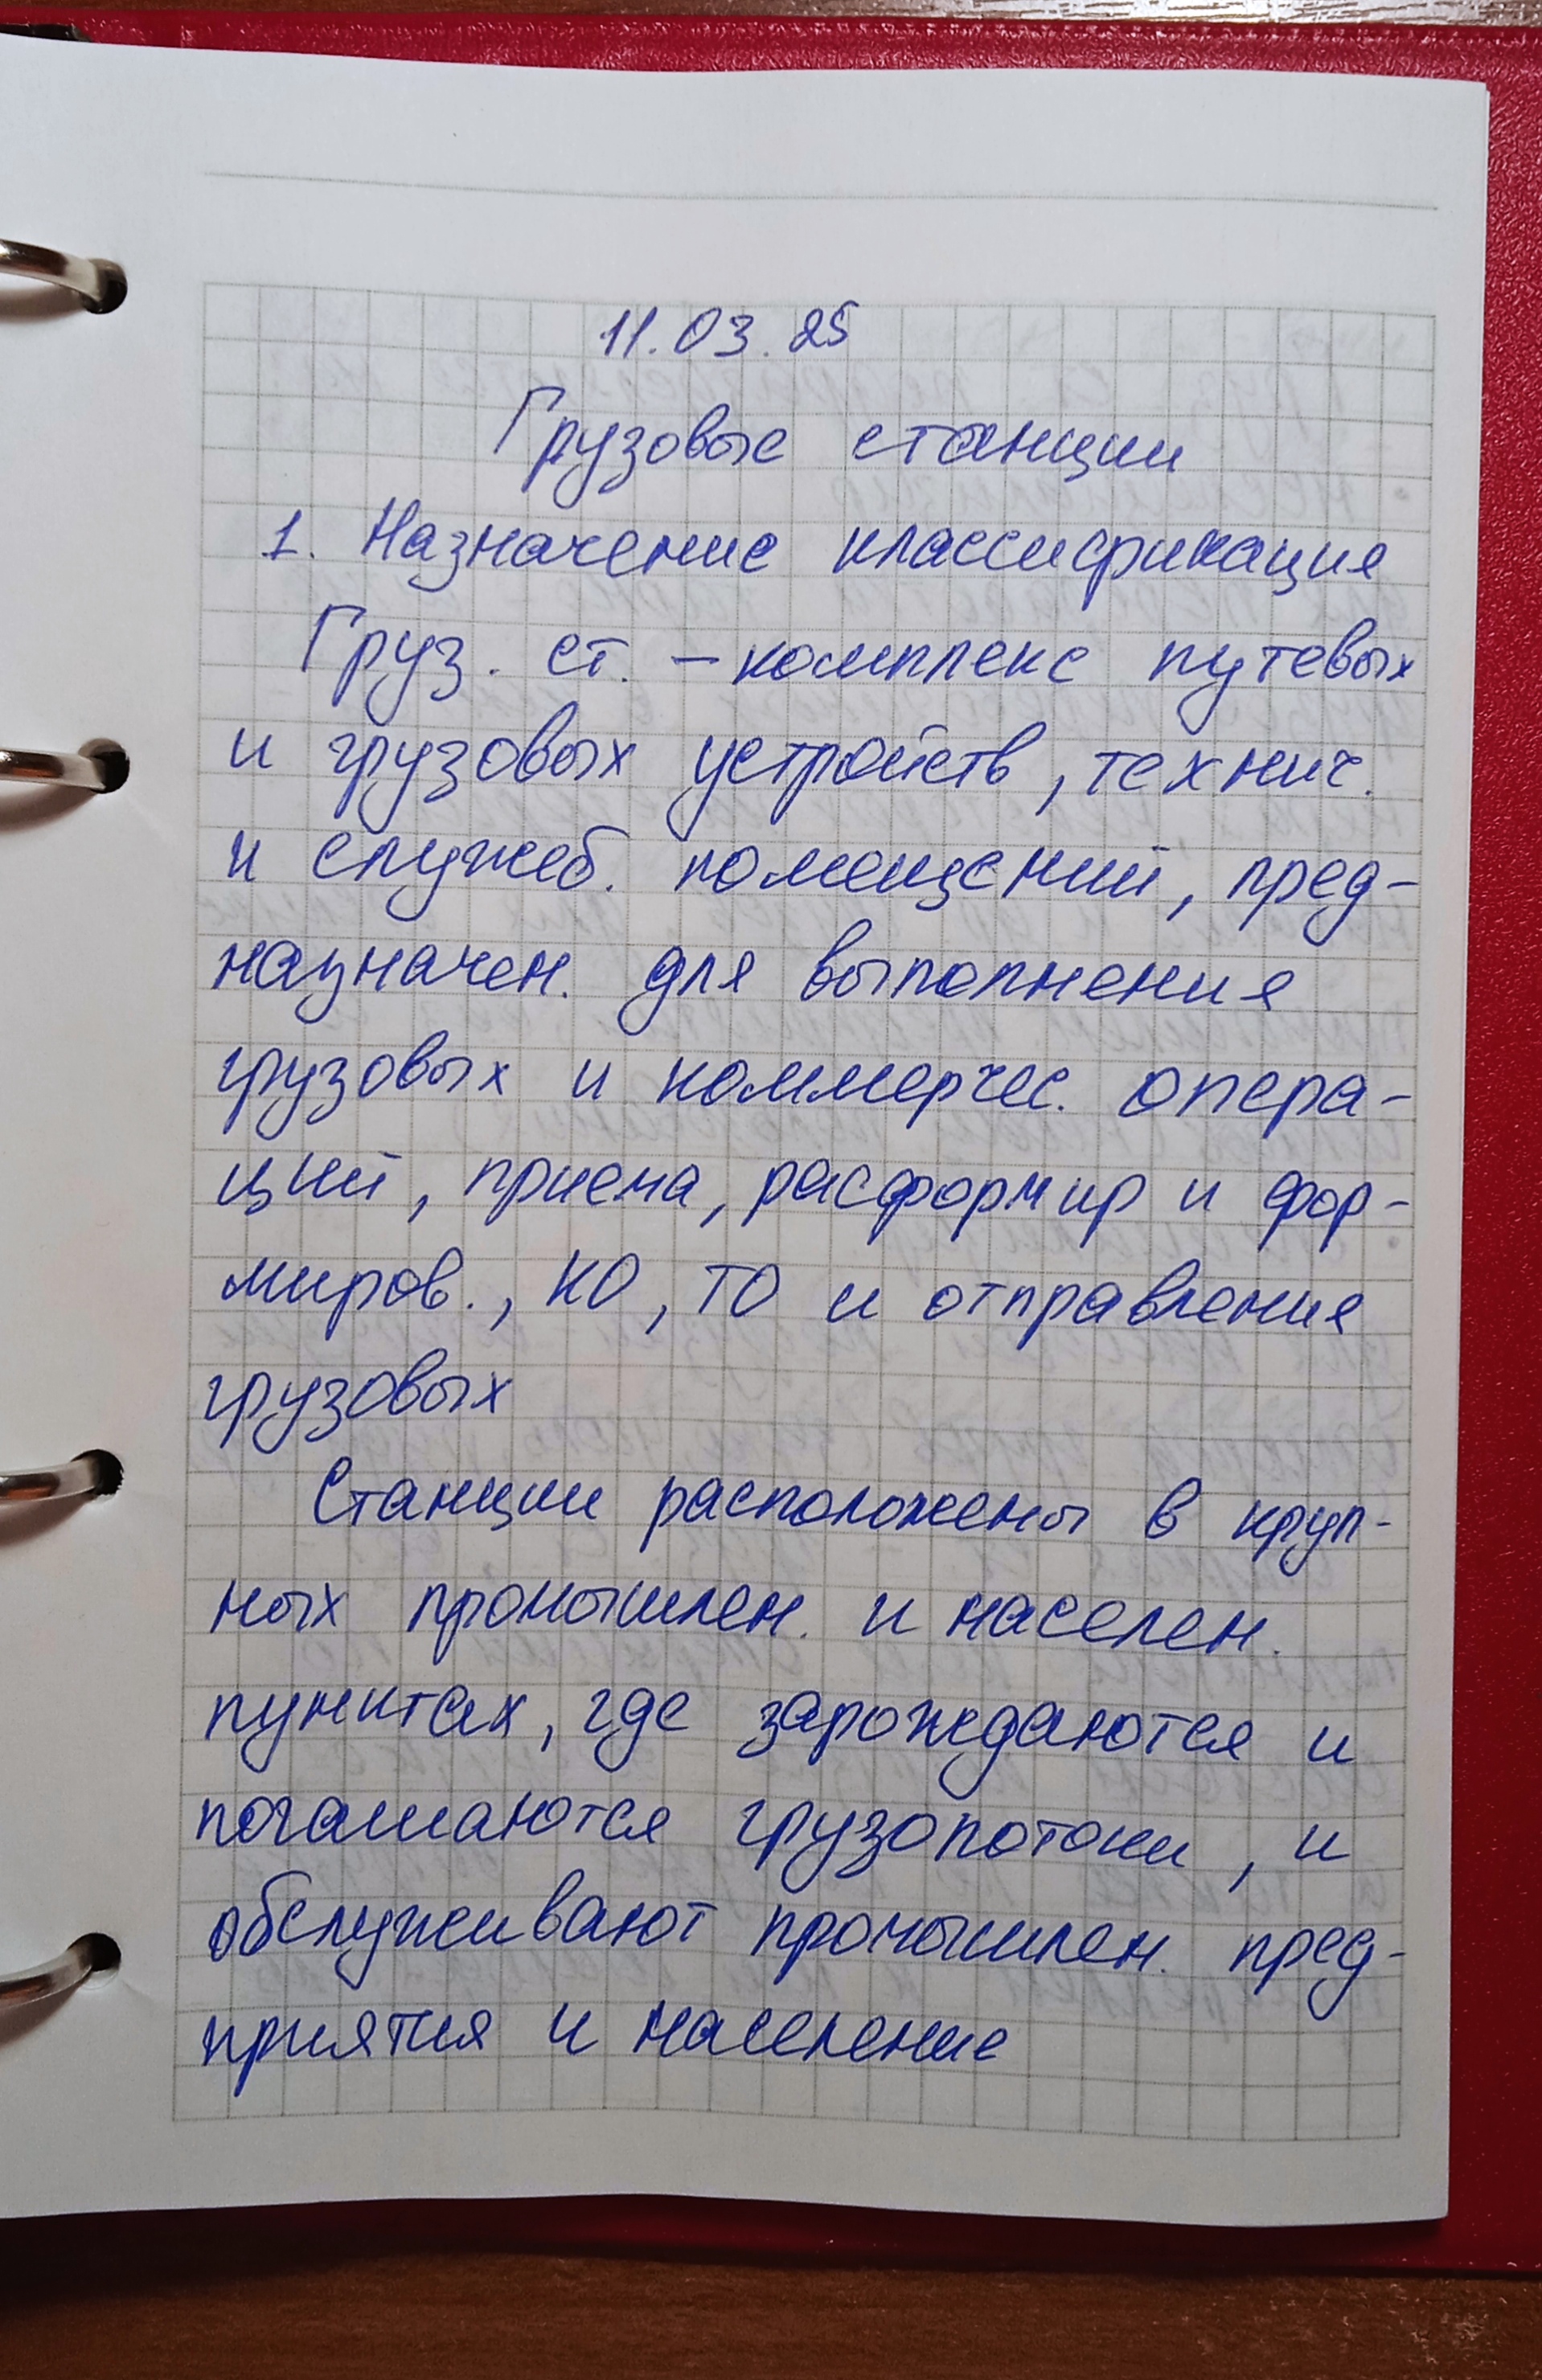 11.03.25
Грузовые станции
1. Назначение классификация
Груз. ст. – комплекс путевых
и грузовых устройств, технич.
и служеб. помещений, пред-
назначен. для выполнения
грузовых и коммерчес. опера-
ций, приема, расформир и фор-
миров., КО, ТО и отправления
грузовых
Станции расположены в круп-
ных промышлен. и населен.
пунктах, где зарождаются и
погашаются грузопотоки, и
обслуживают промышлен. пред-
приятия и население